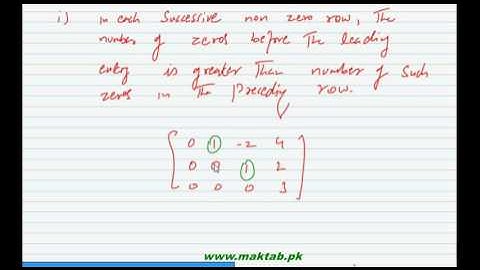 i) in each Successive non zero row, The
number of zeros before The leading
entry is greater Than number of such
zeros in The Preceding row.
0 1 -2 4
0 0 1 2
0 0 0 3
www.maktab.pk